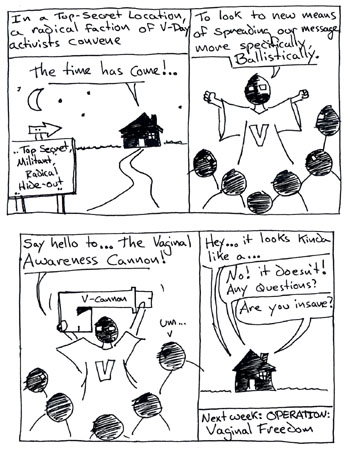 In a Top-Secret Location,
a radical faction of V-Day
activists convene
The time has come!...
Top Secret,
Militant,
Radical
Hide-out
To look to new means
of spreading our message
more specifically,
Ballistically.
V
Say hello to... The Vaginal
Awareness Cannon!
V-Cannon
um...
V
Hey... it looks kinda
like a...
No! it doesn't!
Any Questions?
Are you insane?
Next week: OPERATION:
Vaginal Freedom